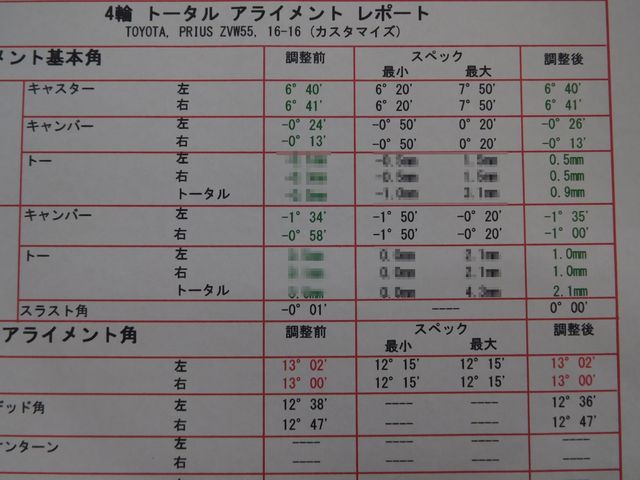 4輪 トータル アライメント レポート
TOYOTA, PRIUS ZVW55, 16-16 (カスタマイズ)
メント基本角 調整前 スペック 調整後
最小 最大
キャスター 左 6° 40' 6° 20' 7° 50' 6° 40'
右 6° 41' 6° 20' 7° 50' 6° 41'
キャンバー 左 -0° 24' -0° 50' 0° 20' -0° 26'
右 -0° 13' -0° 50' 0° 20' -0° 13'
トー 左 0.5mm
右 0.5mm
トータル 0.9mm
キャンバー 左 -1° 34' -1° 50' -0° 20' -1° 35'
右 -0° 58' -1° 50' -0° 20' -1° 00'
トー 左 1.0mm
右 1.0mm
トータル 2.1mm
スラスト角 -0° 01' ---- 0° 00'
アライメント角 調整前 スペック 調整後
最小 最大
左 13° 02' 12° 15' 12° 15' 13° 02'
右 13° 00' 12° 15' 12° 15' 13° 00'
デッド角 左 12° 38' ---- ---- 12° 36'
右 12° 47' ---- ---- 12° 47'
ンターン 左 ---- ---- ---- ----
右 ---- ---- ---- ----